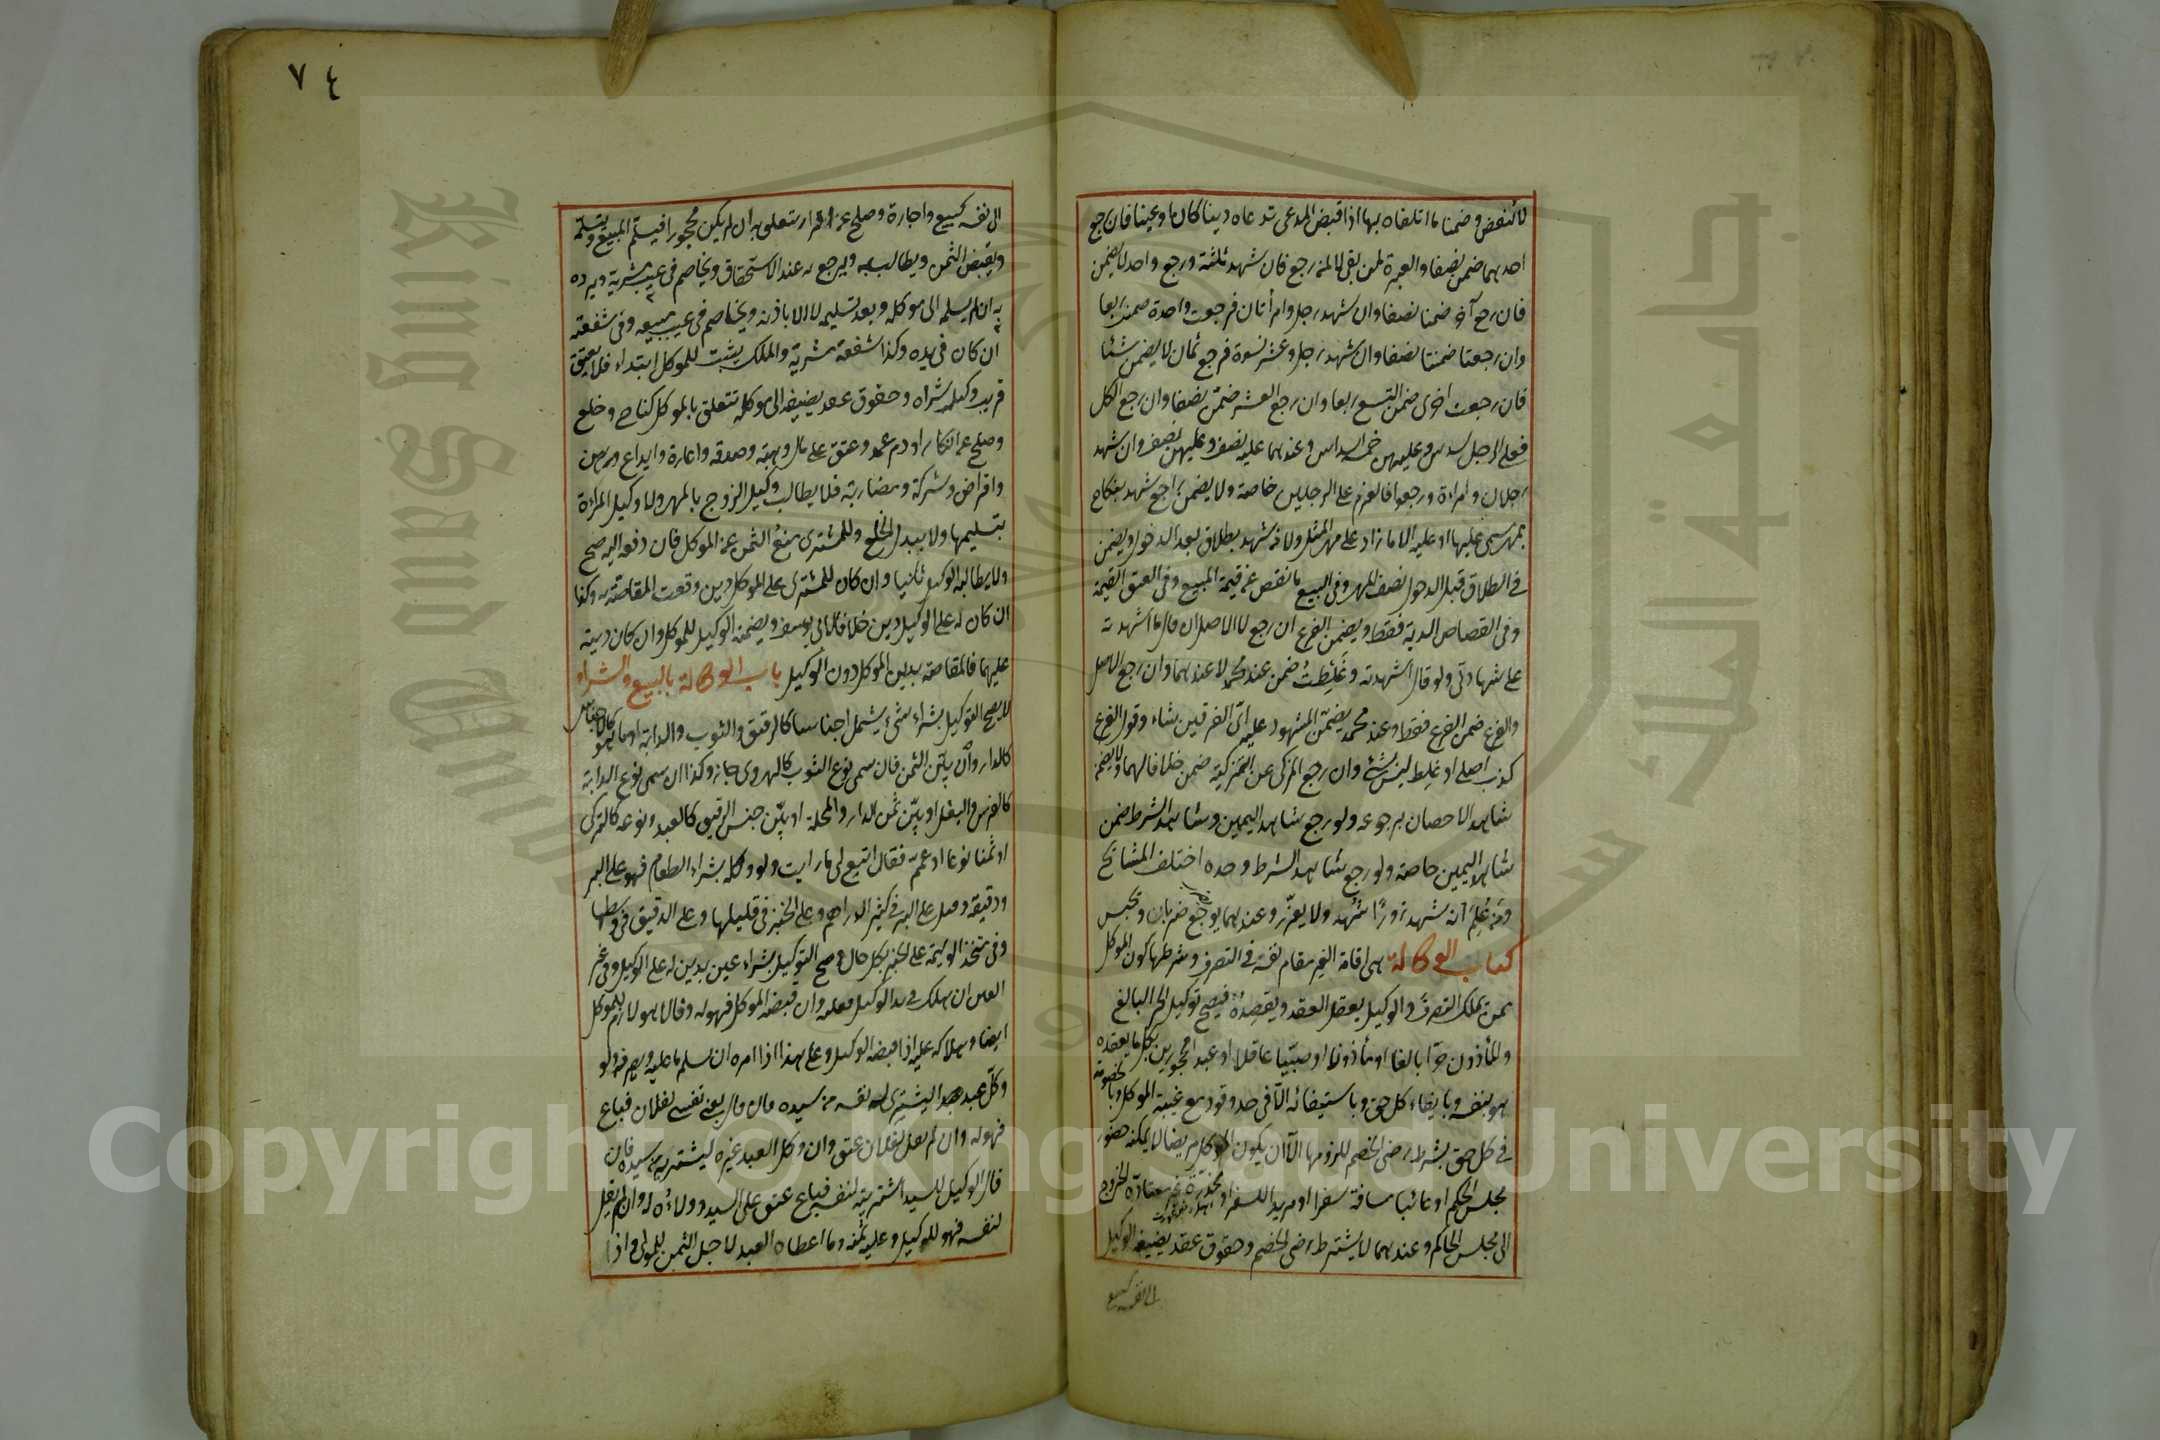 لا تنقض وضمنا ما اتلفاه بها اذا قبض المدعى مدعاه دينا كان او عينا فان رجع
احدهما ضمن نصفا والعبرة لمن بقى لا لمن رجع فان شهد ثلثة ورجع واحد لا يضمن
فان رجع آخر ضمنا نصفا وان شهد رجل وامرأتان فرجعت واحدة ضمنت ربعا
وان رجعتا ضمنتا نصفا وان شهد رجل وعشر نسوة فرجع ثمان لا يضمن شئا
فان رجعت اخرى ضمن التسع ربعا وان رجع العشر ضمن نصفا وان رجع الكل
فعلى الرجل سدس وعليهن خمسة اسداس وعندهما عليه نصف وعليهن نصف وان شهد
رجلان وامرأة ورجعوا فالغرم على الرجلين خاصة ولا يضمن راجع شهد بنكاح
بمهر مسمى عليها او عليه الا ما زاد على مهر المثل ولا من شهد بطلاق بعد الدخول ويضمن
فى الطلاق قبل الدخول نصف المهر وفى البيع ما نقص عن قيمة المبيع وفى العتق القيمة
وفى القصاص الدية فقط ويضمن الفرع ان رجع لا الاصل ان قال ما اشهدته
على شهادتى ولو قال اشهدته وغلطت ضمن عند محمد لا عندهما وان رجع الاصل
والفرع ضمن الفرع فقط وعند محمد يضمن المشهود عليه اىّ الفريقين شاء وقول الفرع
كذب اصلى او غلط ليس بشئ وان رجع المزكى عن التزكية ضمن خلافا لهما ولا يضمن
شاهد الاحصان برجوعه ولو رجع شاهد اليمين وشاهد الشرط ضمن
شاهد اليمين خاصة ولو رجع شاهد الشرط وحده اختلف المشائخ
ومن عُلِمَ انه شهد زورًا شُهد ولا يعزّر وعندهما يوجع ضربان وحبس
كتاب الوكالة هى اقامة الغير مقام نفسه فى التصرف وشرطها كون الموكل
ممن يملك التصرف والوكيل يعقل العقد ويقصده فيصح توكيل الحر البالغ
والمأذون حرا بالغا او مأذونا او صبيّا عاقلا او عبدا محجورين بكل ما يعقده
هو بنفسه وبايفاء كل حق وباستيفائه الّا فى حد وقود مع غيبة الموكل وبالخصومة
فى كل حق بشرط رضى الخصم للزومها الّا ان يكون الموكل مريضا لا يمكنه حضور
مجلس الحكم او غائبا مسافة سفر او مريدا للسفر او مخدّرة غير معتادة الخروج
الى مجلس الحاكم وعندهما لا يشترط رضى الخصم وحقوق عقد يضيفه الوكيل
الى نفسه كبيع
٧٤
الى نفسه كبيع واجارة وصلح عن اقرار تتعلق به ان لم يكن محجورا فيسلم المبيع ويتسلمه
ويقبض الثمن ويطالب به ويرجع به عند الاستحقاق ويخاصم فى عيب مشريه ويرده
به ان لم يسلمه الى موكله وبعد تسليمه لا الا باذنه ويخاصم فى عيب مبيعه وفى شفعته
ان كان فى يده وكذا شفعة مشريه والملك يثبت للموكل ابتداء فلا يعتق
قريب وكيل شراه وحقوق عقد يضيفه الى موكله تتعلق بالموكل كنكاح وخلع
وصلح عن انكار او دم عمد وعتق على مال وهبة وصدقه واعارة وايداع ورهن
واقراض وشركة ومضاربة فلا يطالب وكيل الزوج بالمهر ولا وكيل المرأة
بتسليمها ولا ببدل الخلع وللمشترى منع الثمن عن الموكل فان دفعه اليه صح
ولا يطالبه الوكيل ثانيا وان كان للمشترى على الموكل دين وقعت المقاصة به وكذا
ان كان له على الوكيل دين خلافا لابى يوسف ويضمنه الوكيل للموكل وان كان دينه
عليهما فالمقاصة بدين الموكل دون الوكيل باب الوكالة بالبيع والشراء
لا يصح التوكيل بشراء شئ يشمل اجناسا كالرقيق والثوب والدابة او ما هو كالاجناس
كالدار وان بيّن الثمن فان سمى نوع الثوب كالهروى جاز وكذا ان سمى نوع الدابة
كالفرس والبغل او بيّن ثمن الدار والمحلة او بيّن جنس الرقيق كالعبد ونوعه كالتركى
او ثمنا نوعا او عمم فقال ابتع لى ما رايت ولو وكله بشراء الطعام فهو على البر
ودقيقه وقيل على البر فى كثير الدراهم وعلى الخبز فى قليلها وعلى الدقيق فى وسطها
وفى متخذ الوليمة على الخبز بكل حال وصح التوكيل بشراء عين بدين له على الوكيل وفى غير
العين ان هلك فى يد الوكيل فعليه وان قبضه الموكل فهو له وقالا هو لازم للموكل
ايضا وهلاكه عليه اذا قبضه الوكيل وعلى هذا اذا امره ان يسلم ما عليه او يصرفه ولو
وكّل عبد ليشترى له نفسه من سيده فان قال بعنى نفسى لفلان فباع
فهو له وان لم يقل لفلان عتق وان وكل العبد غيره ليشتريه من سيده فان
قال الوكيل للسيد اشتريته لنفسه فباع عتق على السيد وولاؤه له وان لم يقل
لنفسه فهو للوكيل وعليه ثمنه وما اعطاه العبد لاجل الثمن للمولى واذا
King Saud University
جامعة الملك سعود
Copyright © King Saud University